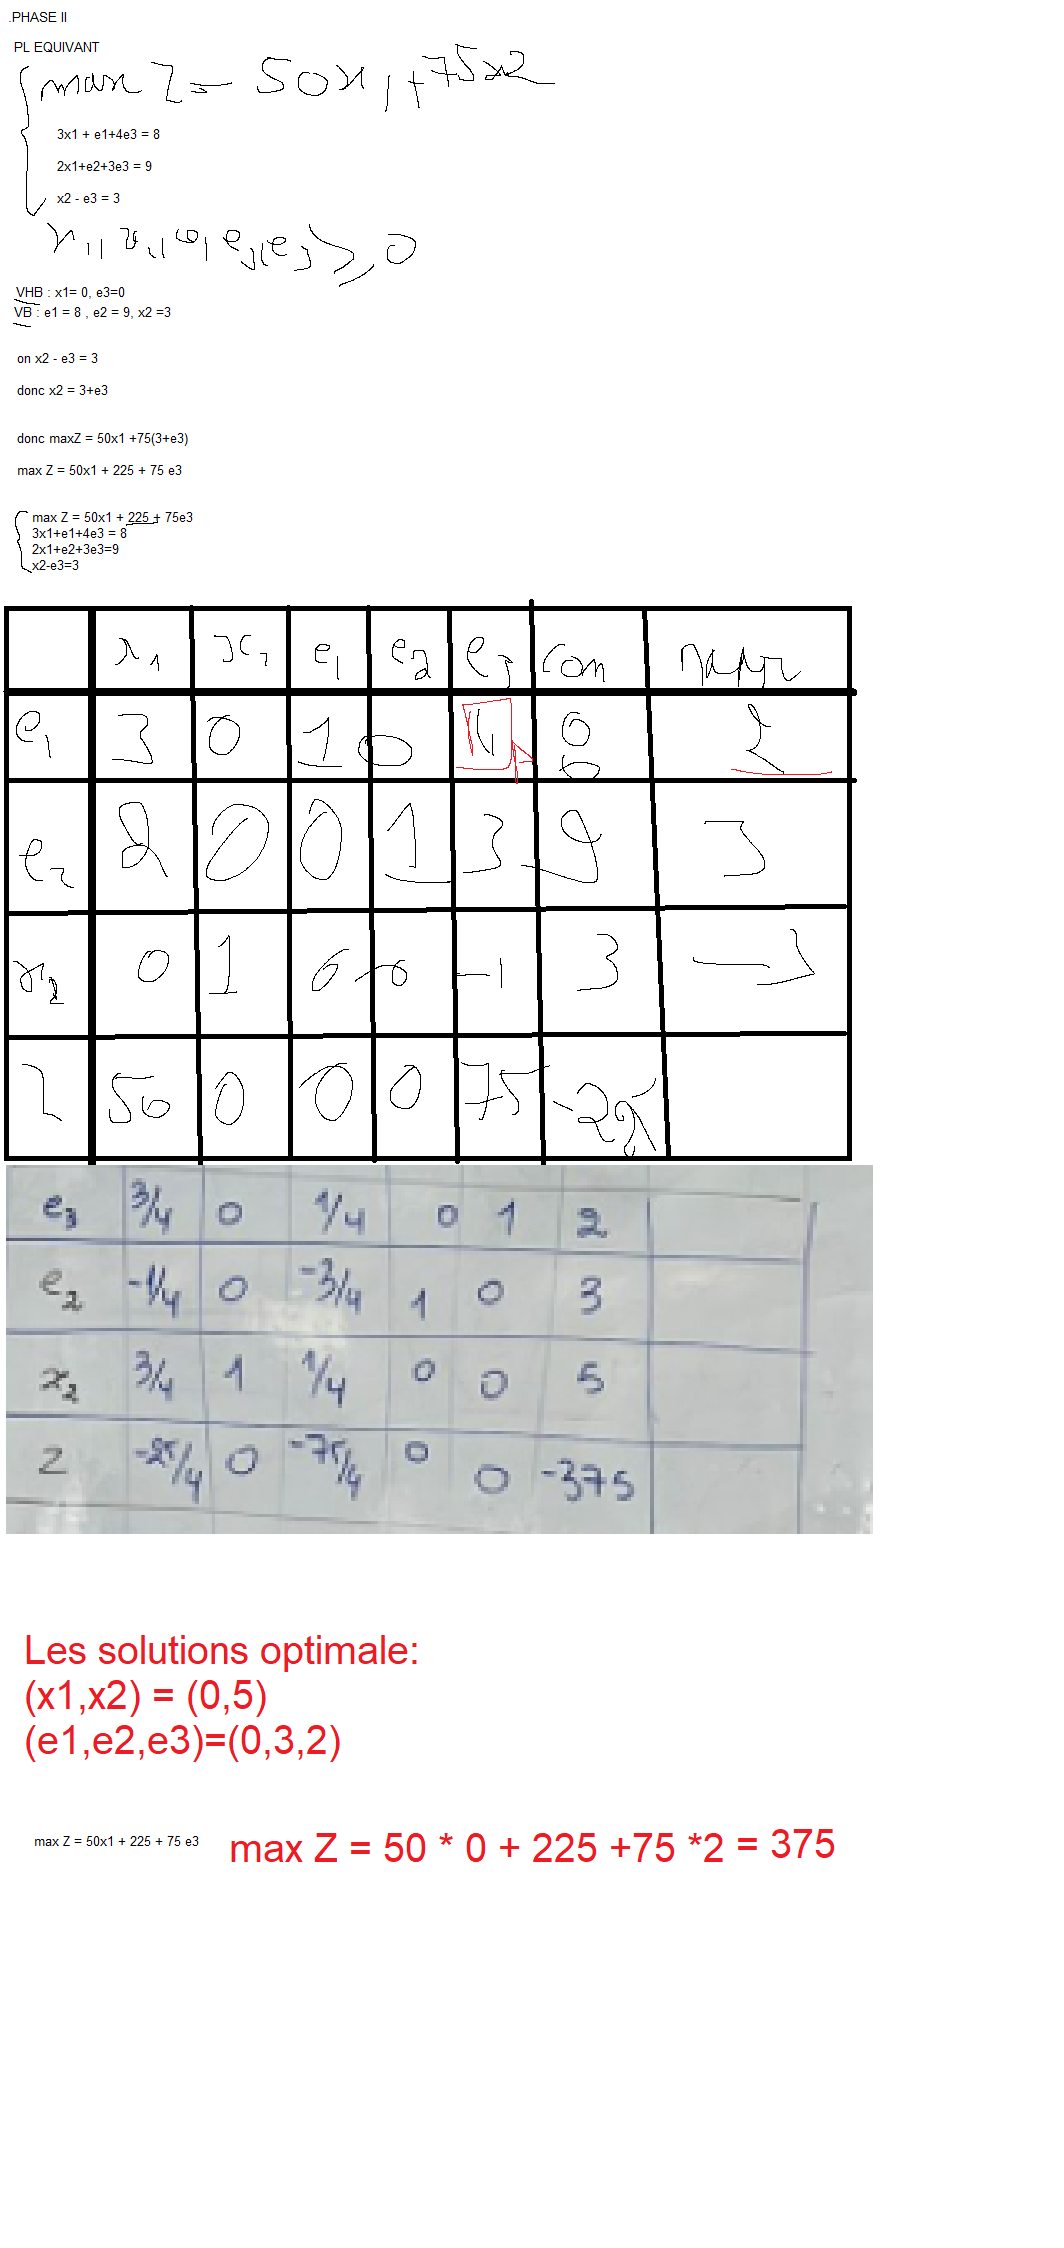 .PHASE II
PL EQUIVANT
max Z = 50x1 + 75x2
3x1 + e1+4e3 = 8
2x1+e2+3e3 = 9
x2 - e3 = 3
≥ 0
VHB : x1= 0, e3=0
VB : e1 = 8 , e2 = 9, x2 =3
on x2 - e3 = 3
donc x2 = 3+e3
donc maxZ = 50x1 +75(3+e3)
max Z = 50x1 + 225 + 75 e3
max Z = 50x1 + 225 + 75e3
3x1+e1+4e3 = 8
2x1+e2+3e3=9
x2-e3=3
x1 x2 e1 e2 e3 con
e1 3 0 1 0 4 8 2
e2 2 0 0 1 3 9 3
x2 0 1 0 0 -1 3
Z 50 0 0 0 75 -225
e3 3/4 0 1/4 0 1 2
e2 -1/4 0 -3/4 1 0 3
x2 3/4 1 1/4 0 0 5
Z -25/4 0 -75/4 0 0 -375
Les solutions optimale:
(x1,x2) = (0,5)
(e1,e2,e3)=(0,3,2)
max Z = 50x1 + 225 + 75 e3 max Z = 50 * 0 + 225 +75 *2 = 375